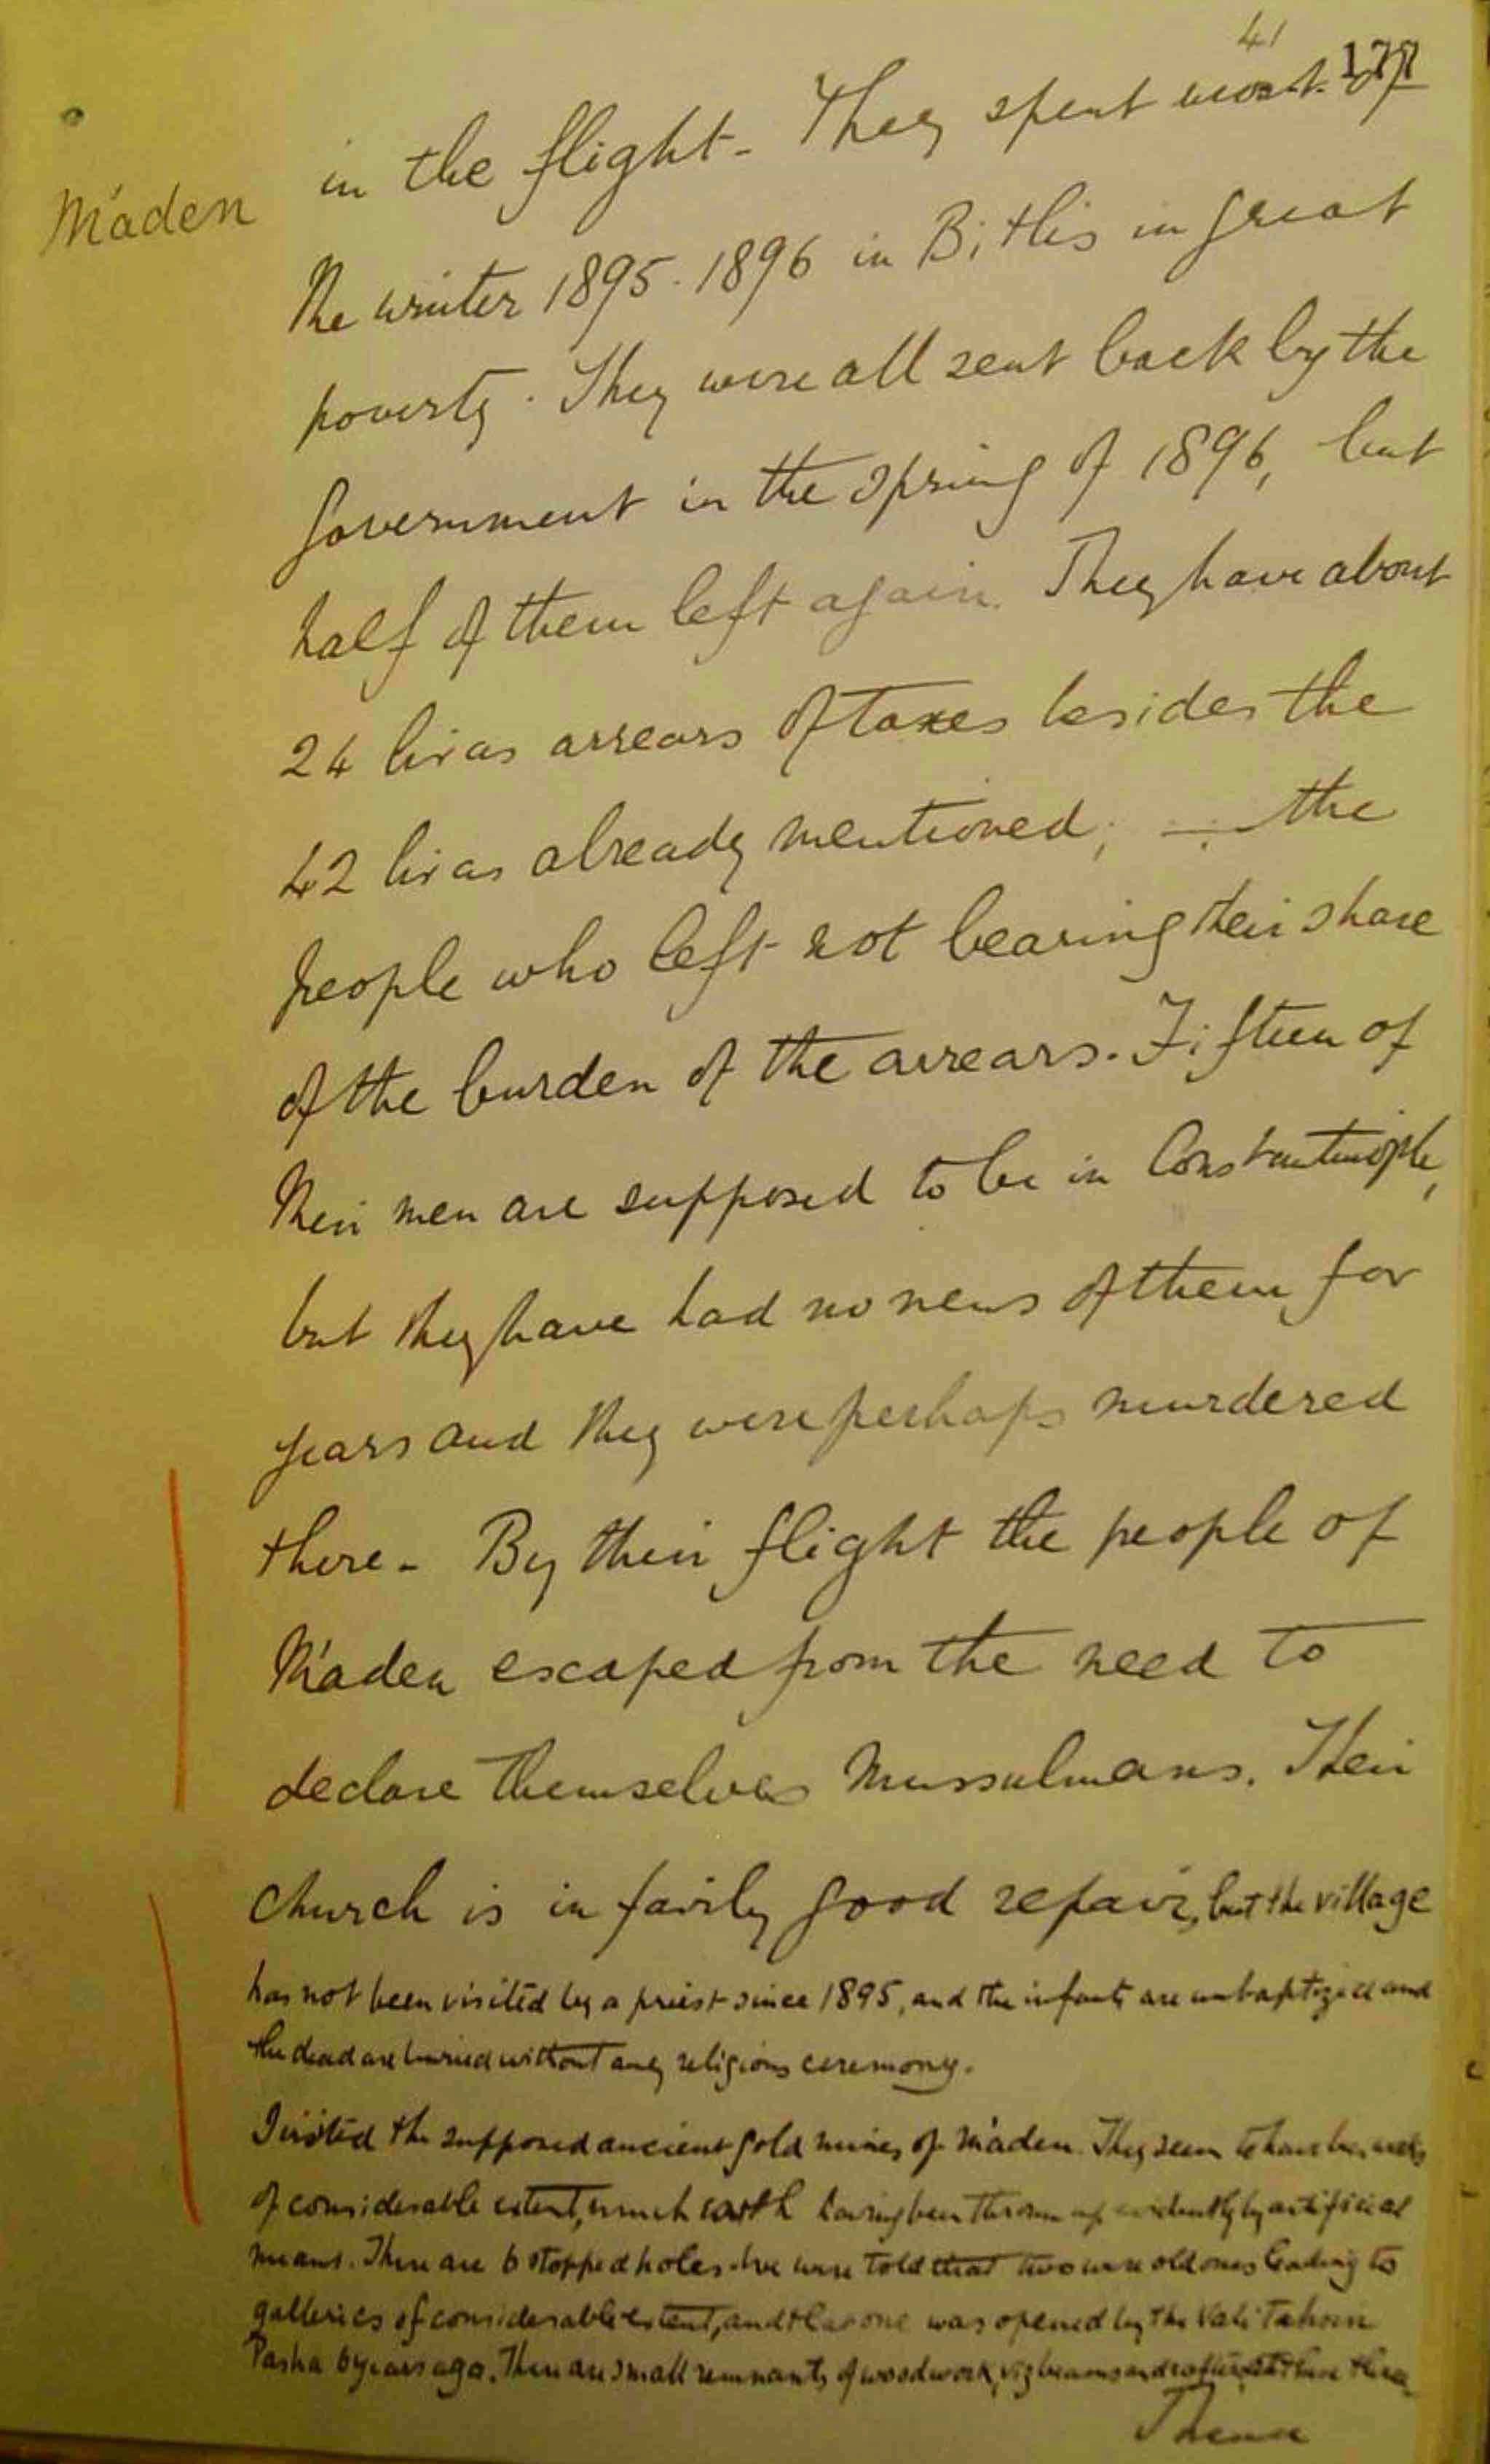 41
177
Máden
in the flight - They spent most of
the winter 1895-1896 in Bitlis in great
poverty. They were all sent back by the
government in the spring of 1896, but
half of them left again. They have about
24 liras arrears of taxes besides the
42 liras already mentioned; - the
people who left not bearing their share
of the burden of the arrears. Fifteen of
their men are supposed to be in Constantinople,
but they have had no news of them for
years and they were perhaps murdered
there - By their flight the people of
Máden escaped from the need to
declare themselves Mussulmans. Their
church is in fairly good repair, but the village
has not been visited by a priest since 1895, and the infants are unbaptized and
the dead are buried without any religious ceremony.
I visited the supposed ancient gold mines of Máden. They seem to have been
of considerable extent, much earth having been thrown up evidently by artificial
means. There are 6 stopped holes. We were told that two were old ones leading to
galleries of considerable extent, and that one was opened by the Vali Tahsin
Pasha 6 years ago. There are small remnants of woodwork, viz beams and rafters
Thence